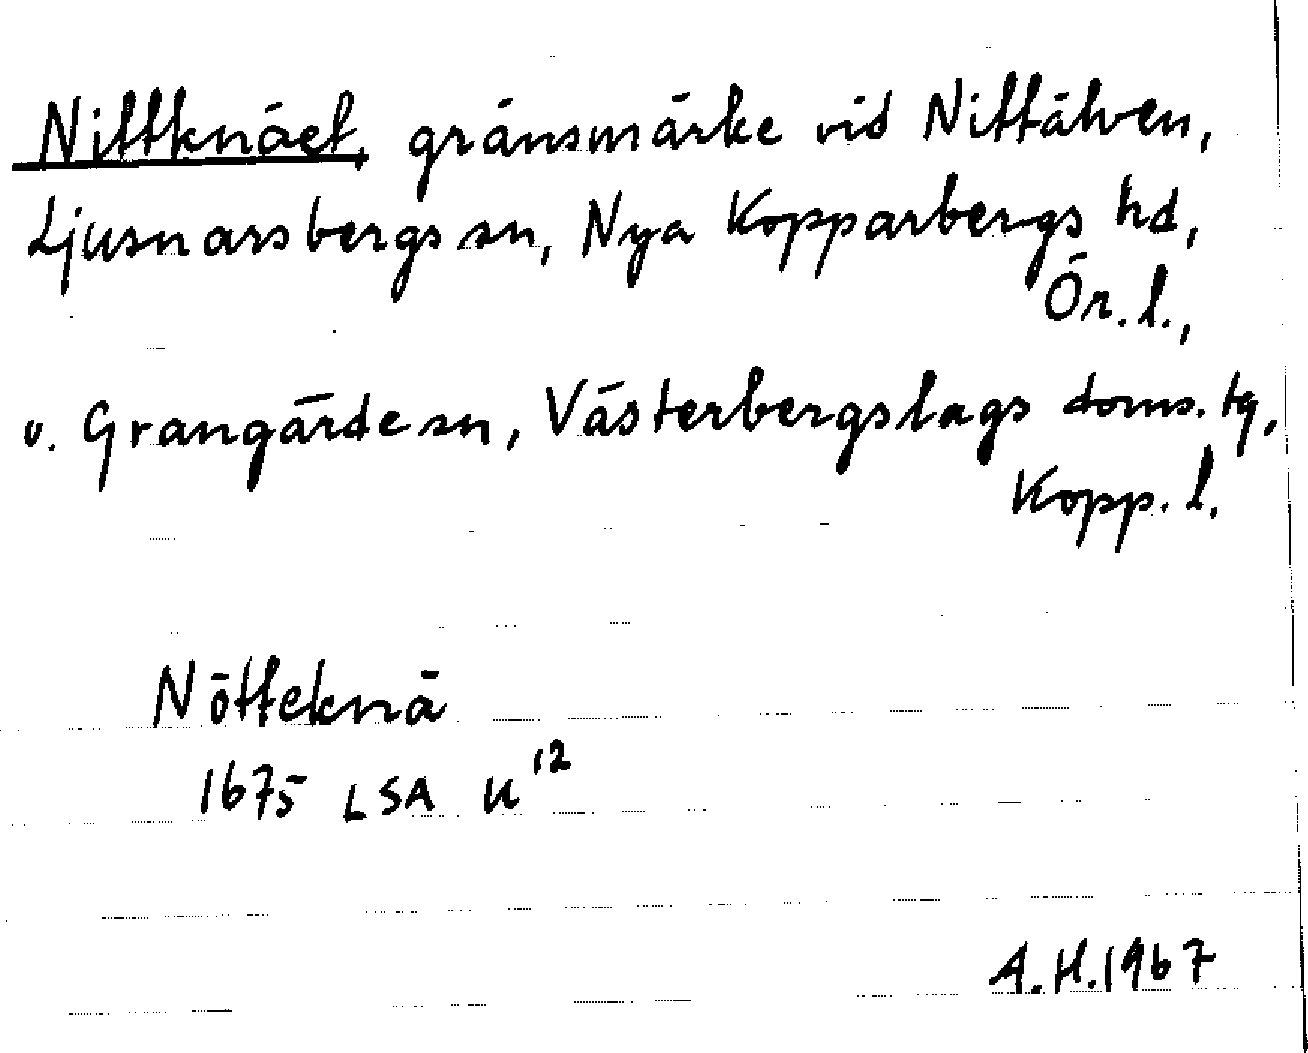 Nittknäet, gränsmärke vid Nittälven,
Ljusnarsbergs sn, Nya Kopparbergs hd,
Ör. l.,
o. Grangärde sn, Västerbergslags doms. tg,
Kopp. l.
Nötteknä
1675 LSA U 12
A.H. 1967